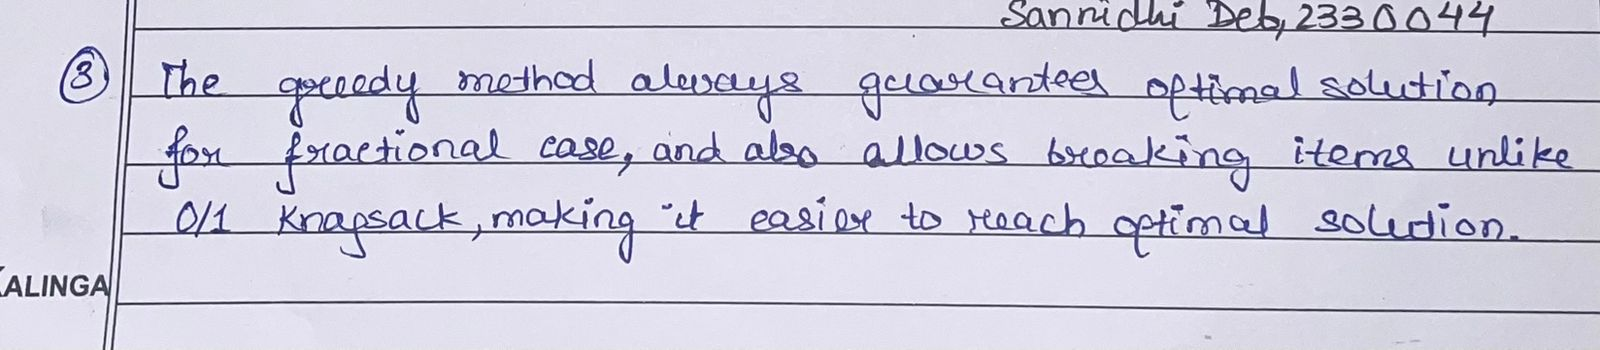 Sannidhi Deb, 2330044
③ The greedy method always guarantees optimal solution
for fractional case, and also allows breaking items unlike
0/1 Knapsack, making it easier to reach optimal solution.
KALINGA